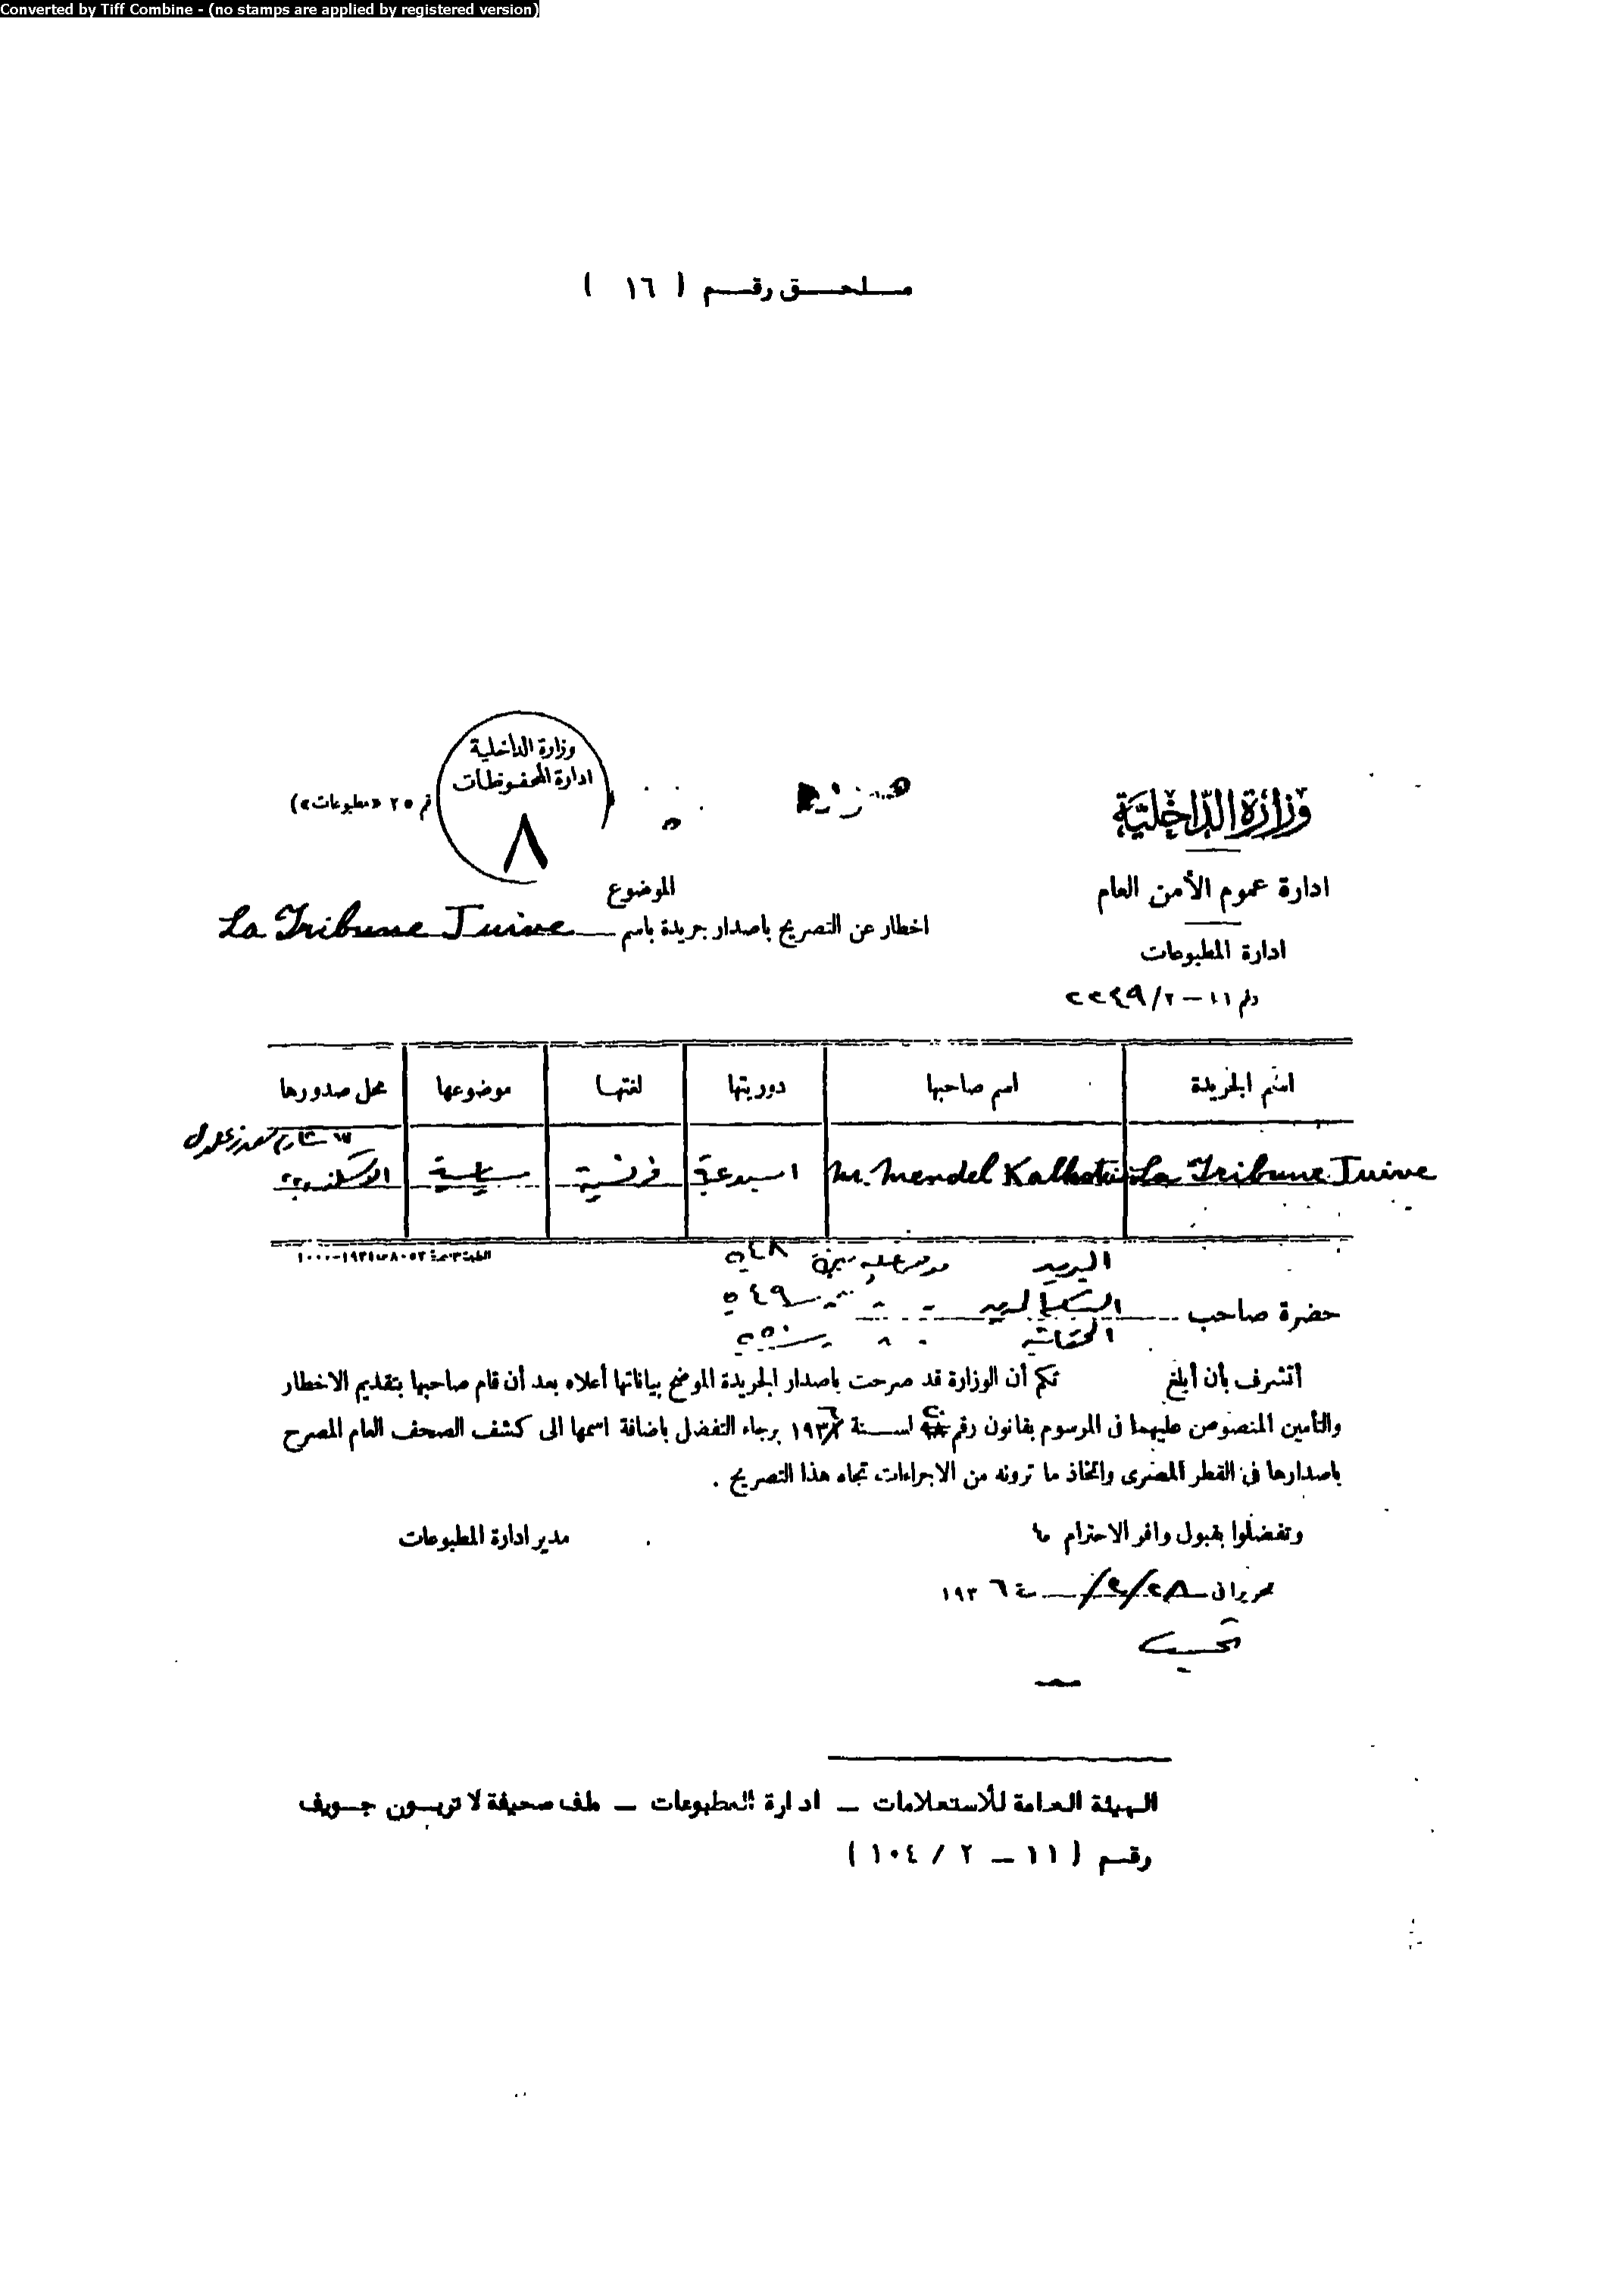 Converted by Tiff Combine - (no stamps are applied by registered version)
ملحق رقم ( ١٦ )
وزارة الداخلية
ادارة المحفوظات
٨
نمرة ٢٥ «مطبوعات»)
وزارة الداخلية
ادارة عموم الأمن العام
ادارة المطبوعات
رقم ١١ – ٢/٢٢٤٩
الموضوع
اخطار عن التصريح باصدار جريدة باسم La Tribune Juive
اسم الجريدة اسم صاحبها دوريتها لغتها موضوعها محل صدورها
La Tribune Juive M. Mendel اسبوعية فرنسية سياسية الاسكندرية
شارع سعد زغلول
البريد ٥٤٨
حضرة صاحب ٥٤٩
٥٥٠
أتشرف بأن أبلغ تكم أن الوزارة قد صرحت باصدار الجريدة الموضح بياناتها أعلاه بعد أن قام صاحبها بتقديم الاخطار
والتأمين المنصوص عليهما فى المرسوم بقانون رقم لسنة ١٩٣٦ برجاء التفضل باضافة اسمها الى كشف الصحف العام المصرح
باصدارها فى القطر المصرى واتخاذ ما ترونه من الاجراءات تجاه هذا التصريح .
وتفضلوا بقبول وافر الاحترام
مدير ادارة المطبوعات
تحريرا فى ٢٨/٤/ سنة ١٩٣٦
الهيئة العامة للأستعلامات – ادارة المطبوعات – ملف صحيفة لا تربون جويف
رقم (١١ – ٢ / ١٠٤)